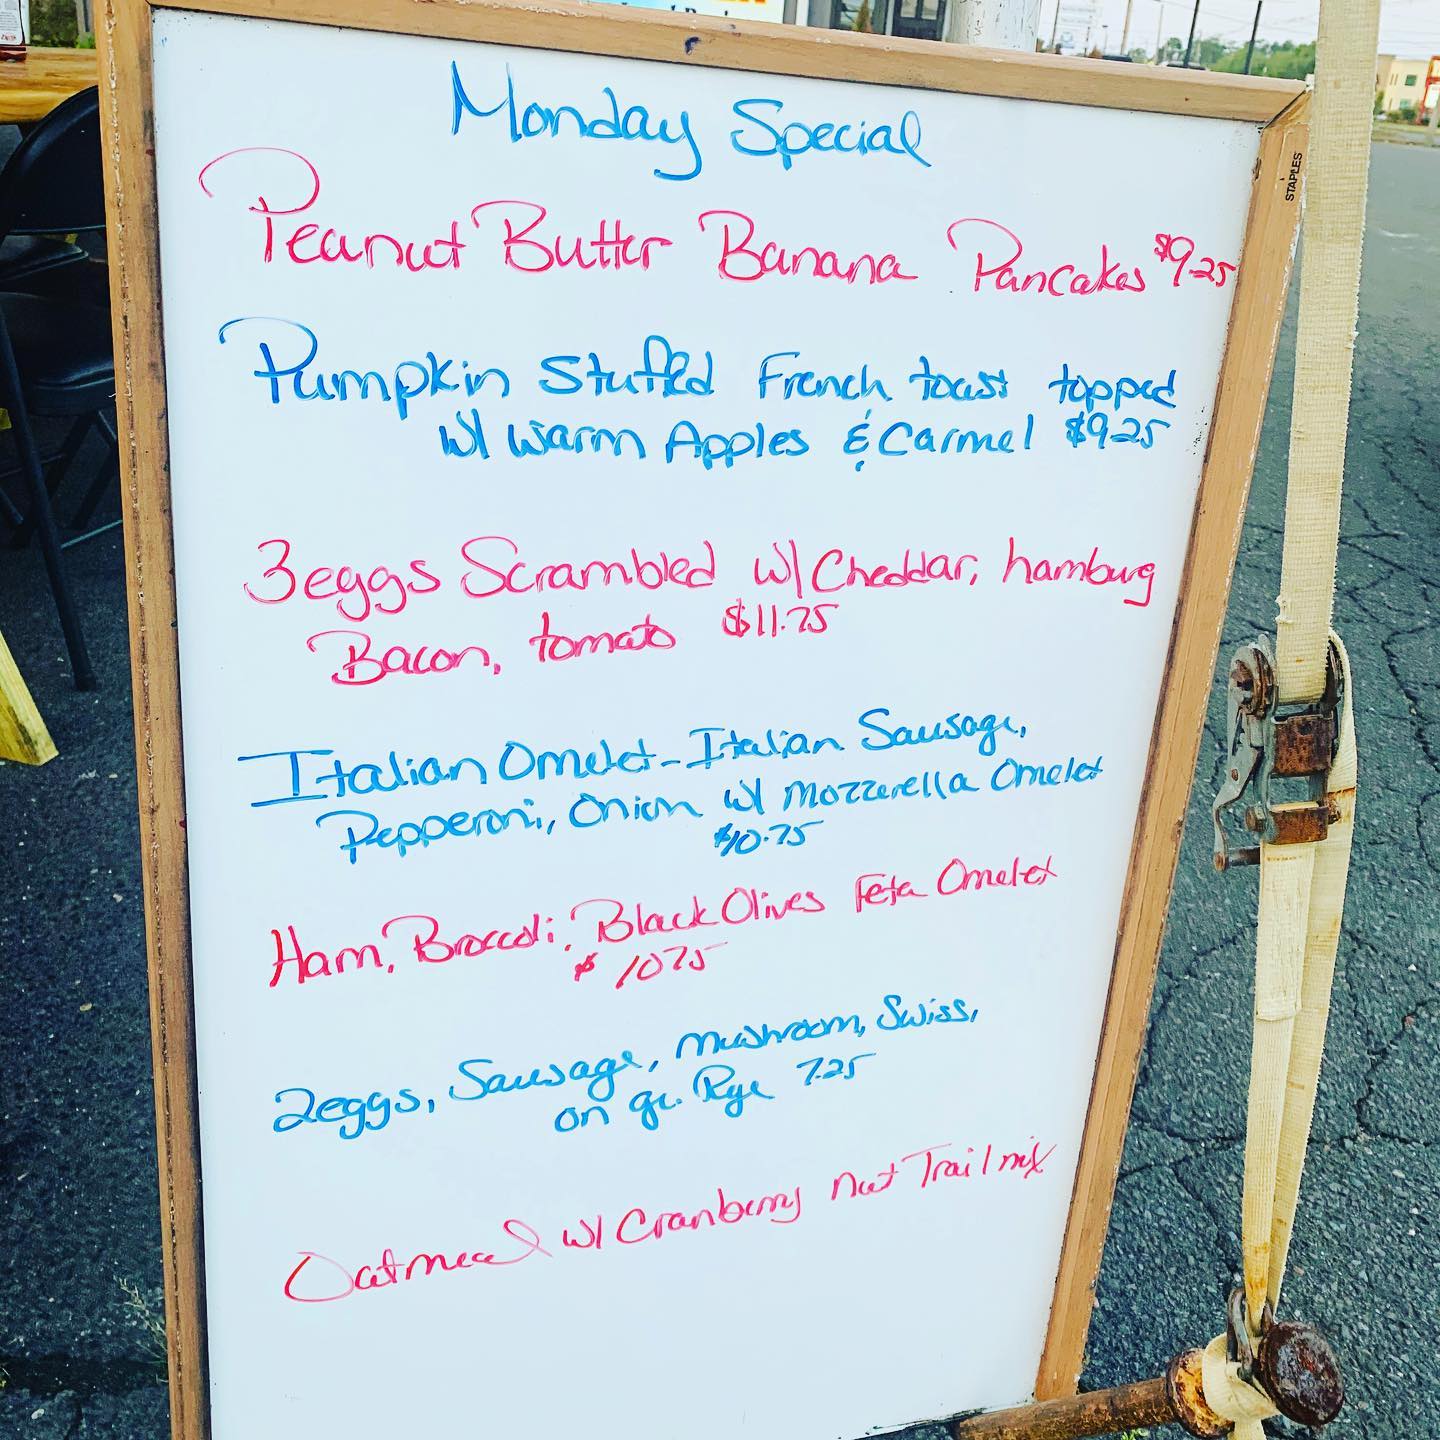 Monday Special
Peanut Butter Banana Pancakes $9.25
Pumpkin Stuffed French toast topped
w/ warm Apples & Carmel $9.25
3eggs Scrambled w/ Cheddar, hamburg
Bacon, tomato $11.75
Italian Omelet - Italian Sausage,
Pepperoni, Onion w/ Mozzerella Omelet
$10.75
Ham, Broccoli, Black Olives Feta Omelet
$ 1075
2eggs, Sausage, Mushroom, Swiss,
on gr. Rye 7.25
Oatmeal w/ Cranberry nut Trail mix
STAPLES